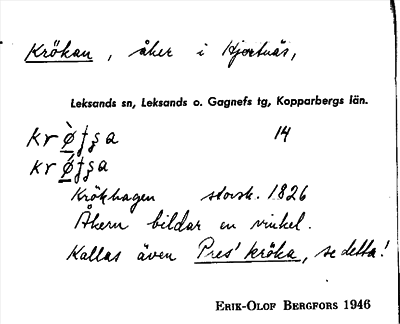 Krökan, åker i Hjortnäs,
Leksands sn, Leksands o. Gagnefs tg, Kopparbergs län.
14
Krökhagen storsk. 1826
Åkern bildar en vinkel.
Kallas även Pres'kröka, se detta!
ERIK-OLOF BERGFORS 1946